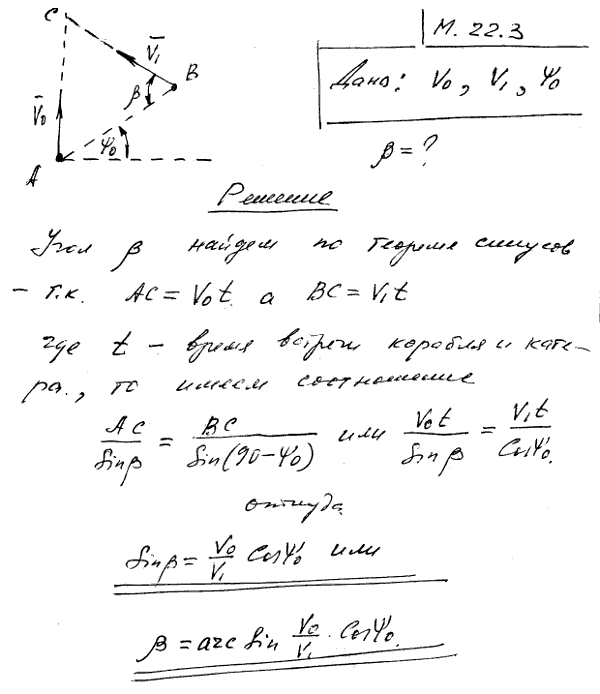 C
V̄₁
B
β
V̄₀
φ₀
A
М. 22.3
Дано: V₀, V₁, φ₀
β = ?
Решение
Угол β найдем по теореме синусов
– т.к. AC = V₀t а BC = V₁t
где t – время встречи корабля и кате-
ра., то имеем соотношение
AC/Sinβ = BC/Sin(90–φ₀) или V₀t/Sinβ = V₁t/Cosφ₀.
откуда
Sinβ = V₀/V₁ Cosφ₀ или
β = arc Sin V₀/V₁ · Cosφ₀.